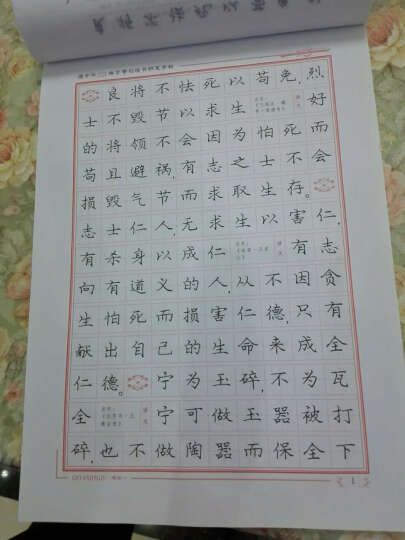 良将不怯死以苟免,烈
士不毁节以求生 译文 好
的将领不会因为怕死而
苟且避祸,有志之士不会
损毁气节而求取生存。
志士仁人,无求生以害仁,
有杀身以成仁 译文 有志
向有道义的人,从不因贪
生怕死而损害仁德,只有
献出自己的生命来成全
仁德。宁为玉碎,不为瓦
全 译文 宁可做玉器被打
碎,也不做陶器而保全下
1